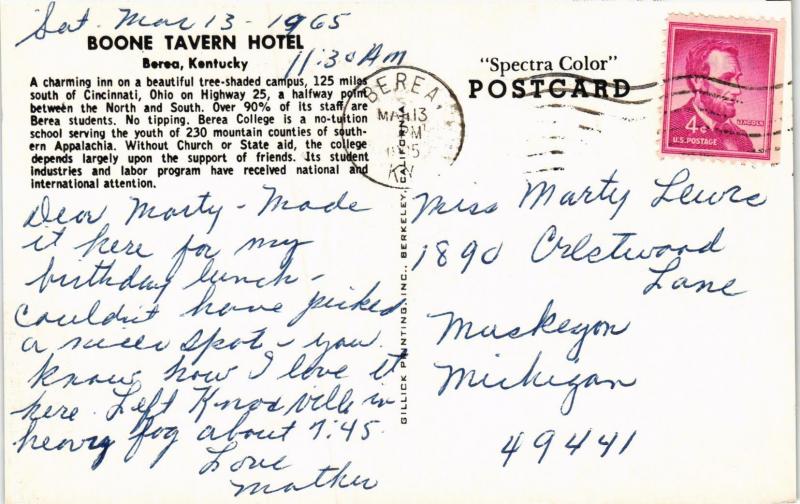 Sat. Mar 13 - 1965
11:30 Am
BOONE TAVERN HOTEL
Berea, Kentucky
A charming inn on a beautiful tree-shaded campus, 125 miles
south of Cincinnati, Ohio on Highway 25, a halfway point
between the North and South. Over 90% of its staff are
Berea students. No tipping. Berea College is a no-tuition
school serving the youth of 230 mountain counties of south-
ern Appalachia. Without Church or State aid, the college
depends largely upon the support of friends. Its student
industries and labor program have received national and
international attention.
Dear Marty - Made
it here for my
birthday lunch -
Couldn't have picked
a nicer spot - you
know how I love it
here. Left Knoxville in
heavy fog about 7:45.
Love
Mother
GILLICK PRINTING, INC., BERKELEY, CALIFORNIA
"Spectra Color"
POSTCARD
BEREA,
MAR 13
PM
KY
LINCOLN
4¢
U.S. POSTAGE
Miss Marty Lewis
1890 Crestwood
Lane
Muskegon
Michigan
49441